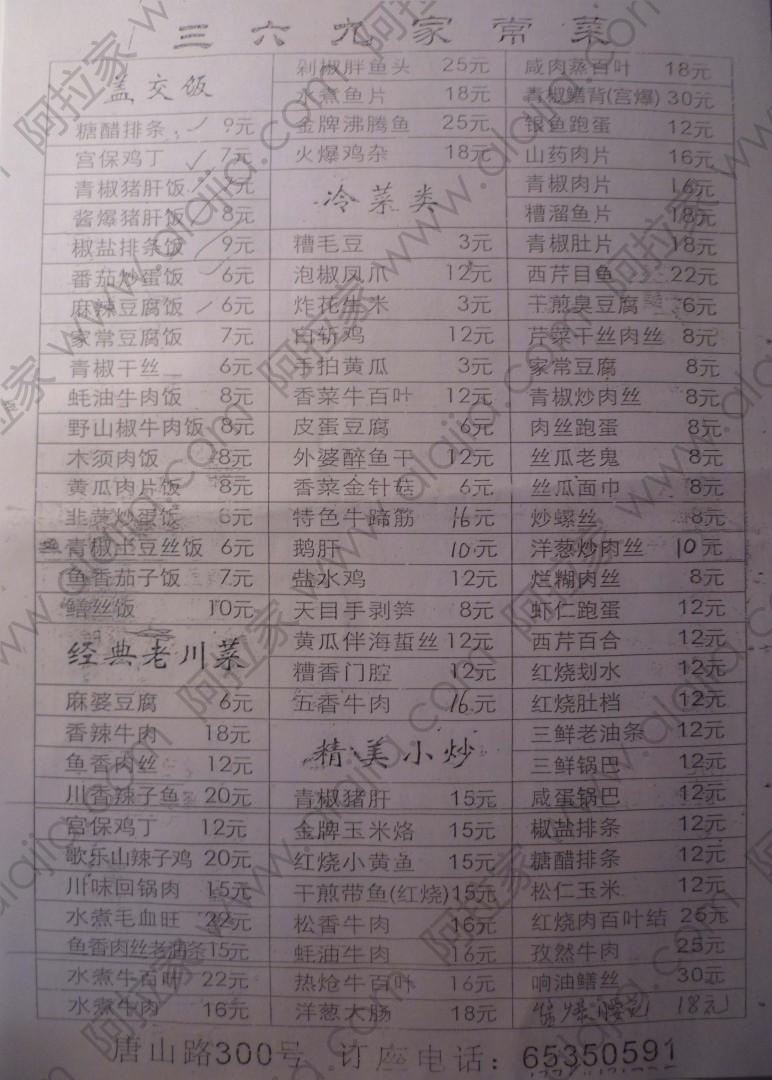 三六九家常菜
盖交饭
糖醋排条 9元
宫保鸡丁 7元
青椒猪肝饭 7元
酱爆猪肝饭 8元
椒盐排条饭 9元
番茄炒蛋饭 6元
麻辣豆腐饭 6元
家常豆腐饭 7元
青椒干丝 6元
蚝油牛肉饭 8元
野山椒牛肉饭 8元
木须肉饭 8元
黄瓜肉片饭 8元
韭菜炒蛋饭 6元
青椒土豆丝饭 6元
鱼香茄子饭 7元
鳝丝饭 10元
经典老川菜
麻婆豆腐 6元
香辣牛肉 18元
鱼香肉丝 12元
川香辣子鱼 20元
宫保鸡丁 12元
歌乐山辣子鸡 20元
川味回锅肉 15元
水煮毛血旺 22元
鱼香肉丝老油条 15元
水煮牛百叶 22元
水煮牛肉 16元
剁椒胖鱼头 25元
水煮鱼片 18元
金牌沸腾鱼 25元
火爆鸡杂 18元
冷菜类
糟毛豆 3元
泡椒凤爪 12元
炸花生米 3元
白斩鸡 12元
手拍黄瓜 3元
香菜牛百叶 12元
皮蛋豆腐 6元
外婆醉鱼干 12元
香菜金针菇 6元
特色牛蹄筋 16元
鹅肝 10元
盐水鸡 12元
天目手剥笋 8元
黄瓜伴海蜇丝 12元
糟香门腔 12元
五香牛肉 16元
精美小炒
青椒猪肝 15元
金牌玉米烙 15元
红烧小黄鱼 15元
干煎带鱼(红烧) 15元
松香牛肉 16元
蚝油牛肉 16元
热炝牛百叶 16元
洋葱大肠 18元
咸肉蒸百叶 18元
青椒鳝背(宫爆) 30元
银鱼跑蛋 12元
山药肉片 16元
青椒肉片 16元
糟溜鱼片 18元
青椒肚片 18元
西芹目鱼 22元
干煎臭豆腐 6元
芹菜干丝肉丝 8元
家常豆腐 8元
青椒炒肉丝 8元
肉丝跑蛋 8元
丝瓜老鬼 8元
丝瓜面巾 8元
炒螺丝 8元
洋葱炒肉丝 10元
烂糊肉丝 8元
虾仁跑蛋 12元
西芹百合 12元
红烧划水 12元
红烧肚档 12元
三鲜老油条 12元
三鲜锅巴 12元
咸蛋锅巴 12元
椒盐排条 12元
糖醋排条 12元
松仁玉米 12元
红烧肉百叶结 25元
孜然牛肉 25元
响油鳝丝 30元
18元
唐山路300号 订座电话：65350591
阿拉家 www.alajia.com